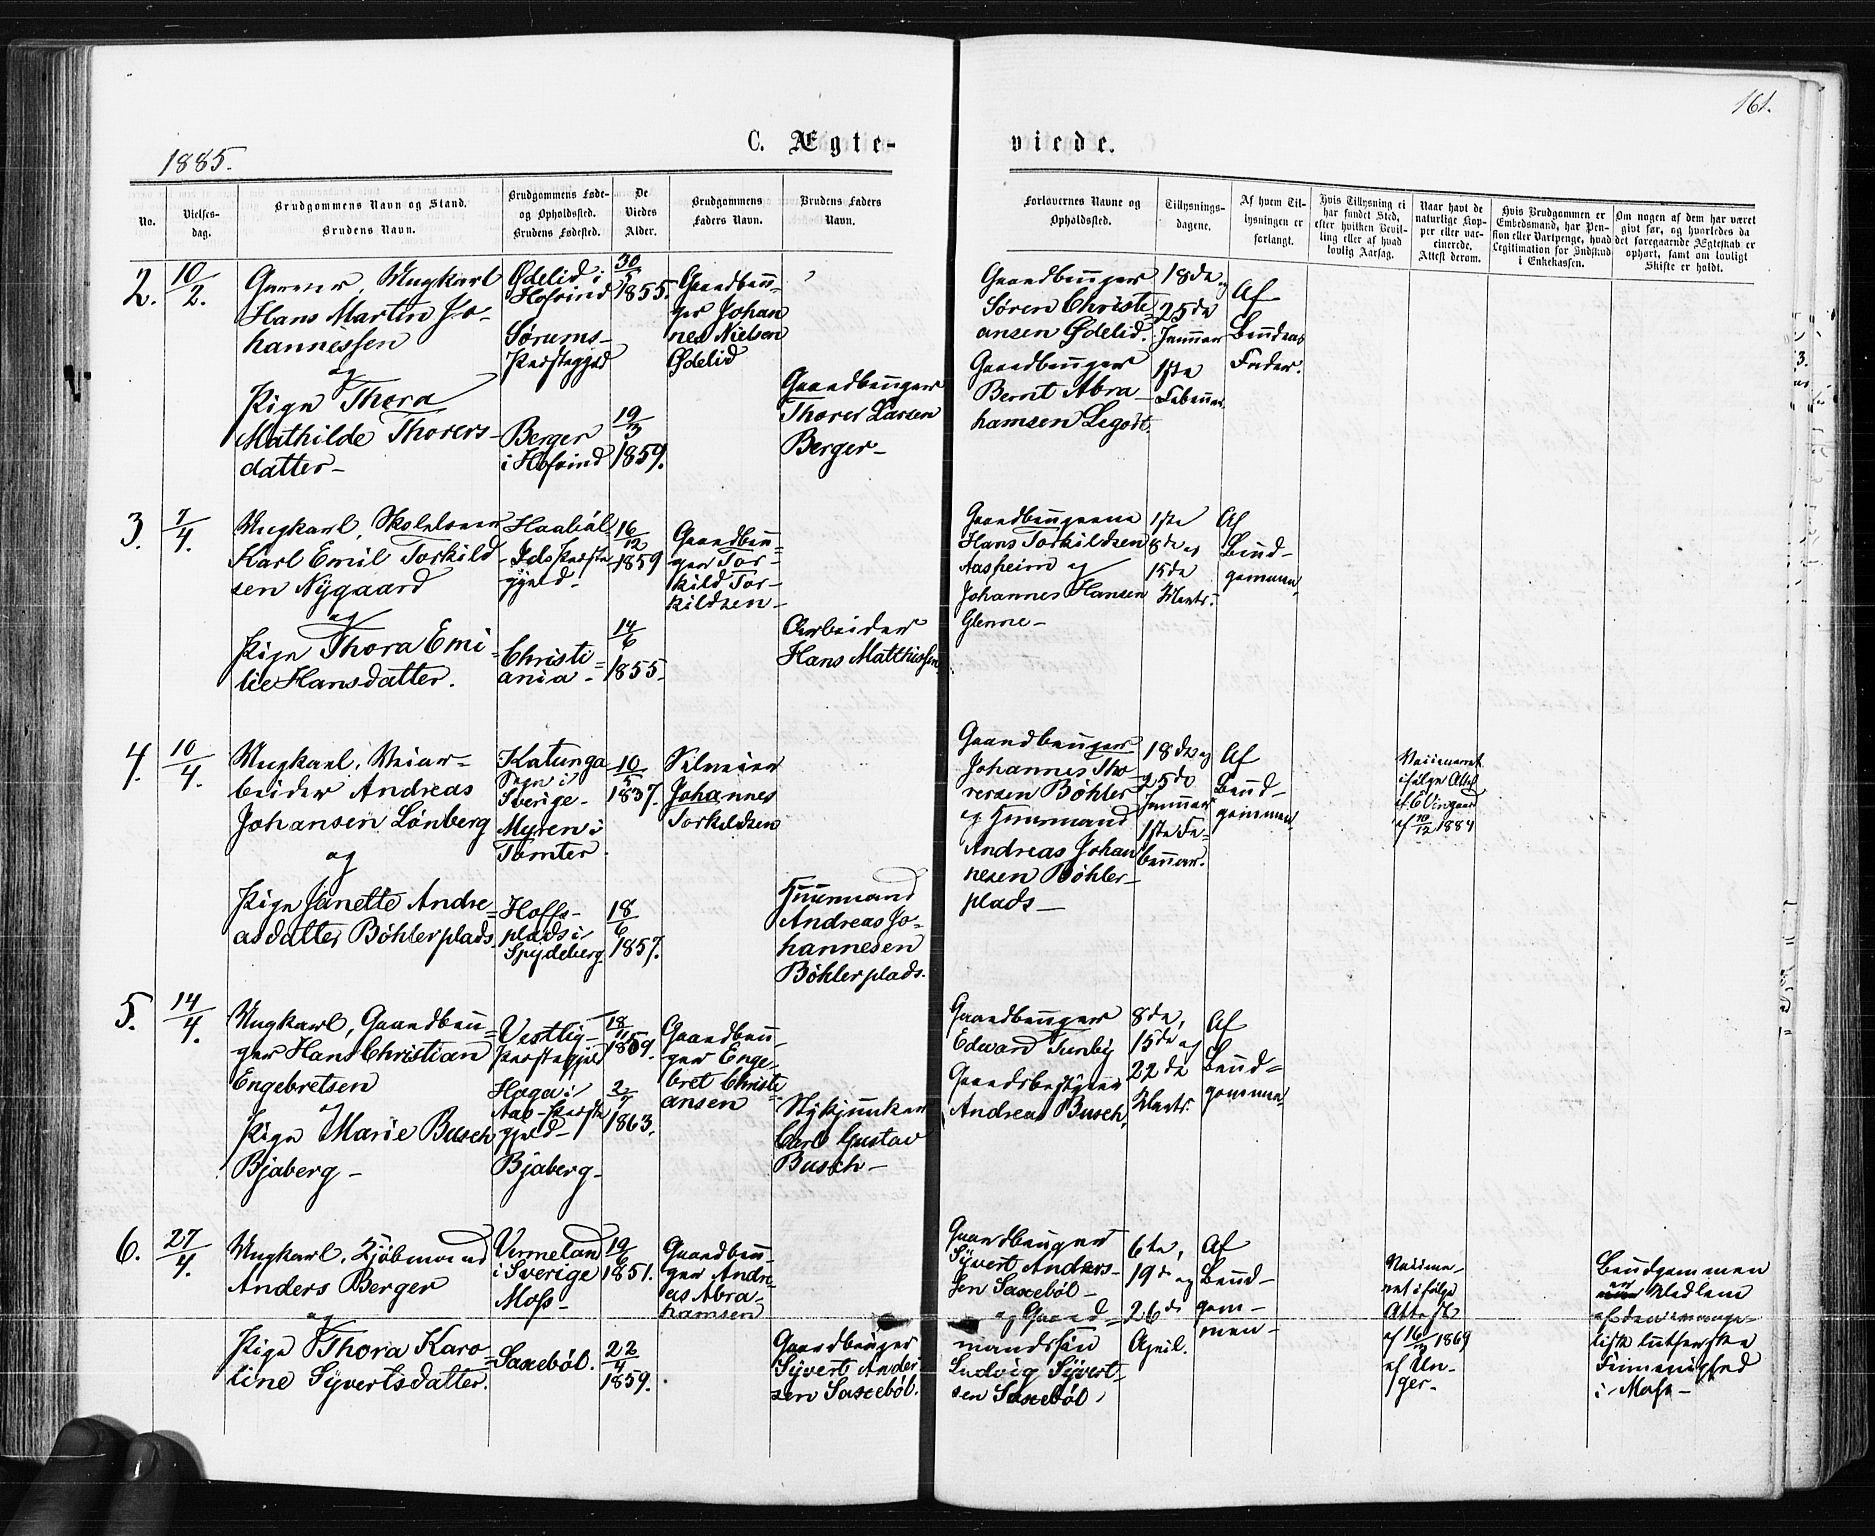 161.
1885.
C. Ægte-
viede.
No.
Vielses-
dag.
Brudgommens Navn og Stand.
Brudens Navn.
Brudgommens Føde-
og Opholdssted.
Brudens Fødested.
De
Viedes
Alder.
Brudgommens
Faders Navn.
Brudens Faders
Navn.
Forlovernes Navne og
Opholdssted.
Tillysnings-
dagene.
Af hvem Til-
lysningen er
forlangt.
Hvis Tillysning ei
har fundet Sted,
efter hvilken Bevil-
ling eller af hvad
lovlig Aarsag.
Naar havt de
naturlige Kop-
per eller vac-
cinerede.
Attest derom.
Hvis Brudgommen er
Embedsmand, har Pen-
sion eller Vartpenge, hvad
Legitimation for Indskud
i Enkekassen.
Om nogen af dem har været
givt før, og hvorledes da
det foregaaende Ægteskab er
ophørt, samt om lovligt
Skifte er holdt.
2.
10/2.
Ungkarl
Hans Martin Jo-
hannessen
og
Pige Thora
Mathilde Thorers-
datter
Ødelid i
Hofvind
Sørums-
Præstegjeld
Berger
i Hofvind
30/5
1855.
19/3
1859.
Gaardbru-
ger Johan
nes Nielsen
Ødelid
Gaardbruger
Thorer Larsen
Berger
Gaardbruger
Søren Christi-
ansen Ødelid.
Gaardbruger
Bernt Abra-
hamsen Legort.
18de og
25de
Januar
1ste
Februar.
Af
Brudens
Fader.
3.
7/4.
Ungkarl, Skolelærer
Karl Emil Torkild
sen Nygaard
og
Pige Thora Emi-
lie Hansdatter.
Haabøl
Ids Præste
gjeld.
Christi-
ania
16/12
1859
14/6
1855
Gaardbru-
ger Tor-
kild Tor-
kildsen
Arbeider
Hans Matthissen
Gaardbrugerne
Hans Torkildsen
Aasheim og
Johannes Hansen
Glenne
1ste
8de og
15de
Marts.
Af
Brud-
gommen
4.
10/4.
Ungkarl, Veiar-
beider Andreas
Johansen Lönberg
og
Pige Janette Andre-
asdatter Böhlerplads
Katunga
Sogn i
Sverige
Myren i
Tomter.
Hoffs-
plads i
Spydeberg.
10/5
1837.
18/6
1857.
Selveier
Johannes
Torkildsen
Huusmand
Andreas Jo-
hannesen
Böhlerplads.
Gaardbruger
Johannes Tho-
rersen Böhler
og Huusmand
Andreas Johan
nesen Böhler-
plads
18de og
25de
Januar
1ste Fe-
bruar.
Af
Brud-
gommen.
Vaccineret
ifølge Att.
af 10/12 1884
5.
14/4.
Ungkarl, Gaardbru-
ger Hans Christian
Engebretsen
og
Pige Marie Busch
Bjaberg
Vestby-
Præstegjeld
Haga i
Aas-Præste
gjeld
Bjaberg
18/11
1859.
2/7
1863.
Gaardbru-
ger Enge-
bret Christi-
ansen
Stykjunker
Carl Gustav
Busch
Gaardbruger
Edward Tunby
Gaardsbestyrer
Andreas Busch.
8de,
15de og
22de
Marts.
Af
Brud-
gommen
6.
27/4.
Ungkarl, Kjøbmand
Anders Berger
og
Pige Thora Karo-
line Syvertsdatter.
Vermeland
i Sverige
Moss
Saxebøl.
19/6
1851.
22/4
1859.
Gaardbru-
ger Andre-
as Abra-
hamsen
Gaardbruger
Syvert Ander
sen Saxebøl.
Gaardbruger
Syvert Anders-
sen Saxebøl
og Gaard-
mandssøn
Ludvig Syvert-
sen Saxebøl
6te,
19de og
26de
April.
Af
Brud-
gom-
men
Vaccine-
ret ifølge
Attest
1869
af Un-
ger
Brudgommen
er Medlem
af den evange-
lisk lutherske
Frimenighed
i Moss